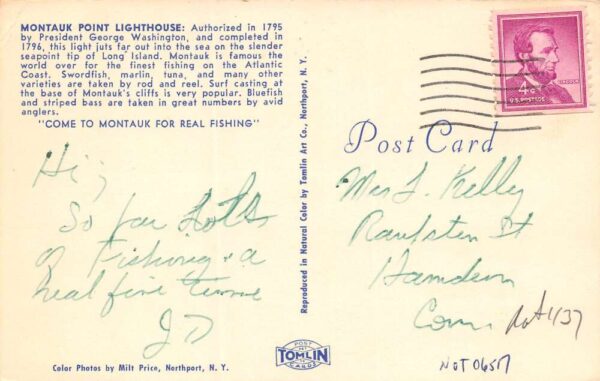 MONTAUK POINT LIGHTHOUSE: Authorized in 1795
by President George Washington, and completed in
1796, this light juts far out into the sea on the slender
seapoint tip of Long Island. Montauk is famous the
world over for the finest fishing on the Atlantic
Coast. Swordfish, marlin, tuna, and many other
varieties are taken by rod and reel. Surf casting at
the base of Montauk's cliffs is very popular. Bluefish
and striped bass are taken in great numbers by avid
anglers.
"COME TO MONTAUK FOR REAL FISHING"
Hi,
So far Lots
of Fishing + a
real fine time
JD
Color Photos by Milt Price, Northport, N. Y.
Reproduced in Natural Color by Tomlin Art Co., Northport, N. Y.
POST
TOMLIN
CARDS
LINCOLN
4¢
U.S. POSTAGE
Post Card
Kelly
St
Hamden
Conn
NOT0657